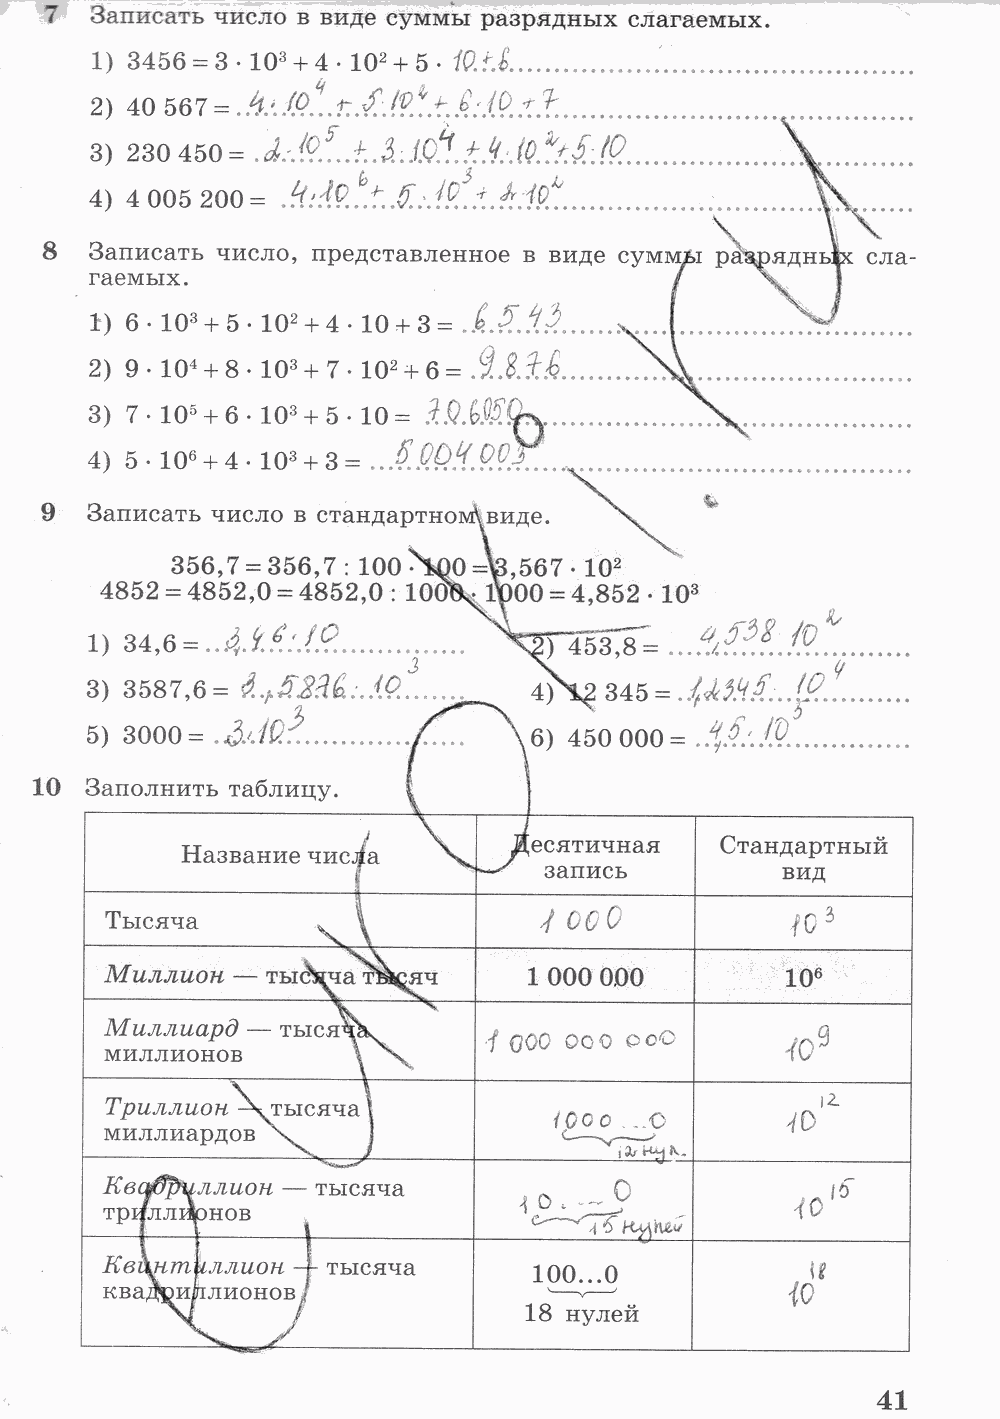 7 Записать число в виде суммы разрядных слагаемых.
1) 3456 = 3 · 10³ + 4 · 10² + 5 · 10 + 6
2) 40 567 = 4 · 10⁴ + 5 · 10² + 6 · 10 + 7
3) 230 450 = 2 · 10⁵ + 3 · 10⁴ + 4 · 10² + 5 · 10
4) 4 005 200 = 4 · 10⁶ + 5 · 10³ + 2 · 10²
8 Записать число, представленное в виде суммы разрядных сла-
гаемых.
1) 6 · 10³ + 5 · 10² + 4 · 10 + 3 = 6543
2) 9 · 10⁴ + 8 · 10³ + 7 · 10² + 6 = 9876
3) 7 · 10⁵ + 6 · 10³ + 5 · 10 = 706050
4) 5 · 10⁶ + 4 · 10³ + 3 = 5004003
9 Записать число в стандартном виде.
356,7 = 356,7 : 100 · 100 = 3,567 · 10²
4852 = 4852,0 = 4852,0 : 1000 · 1000 = 4,852 · 10³
1) 34,6 = 3,46 · 10 2) 453,8 = 4,538 · 10²
3) 3587,6 = 3,5876 · 10³ 4) 12 345 = 1,2345 · 10⁴
5) 3000 = 3 · 10³ 6) 450 000 = 4,5 · 10⁵
10 Заполнить таблицу.
Название числа Десятичная запись Стандартный вид
Тысяча 1 000 10³
Миллион — тысяча тысяч 1 000 000 10⁶
Миллиард — тысяча
миллионов 1 000 000 000 10⁹
Триллион — тысяча
миллиардов 1000...0 10¹²
12 нул.
Квадриллион — тысяча
триллионов 10...0 10¹⁵
15 нулей
Квинтиллион — тысяча
квадриллионов 100...0 10¹⁸
18 нулей
41